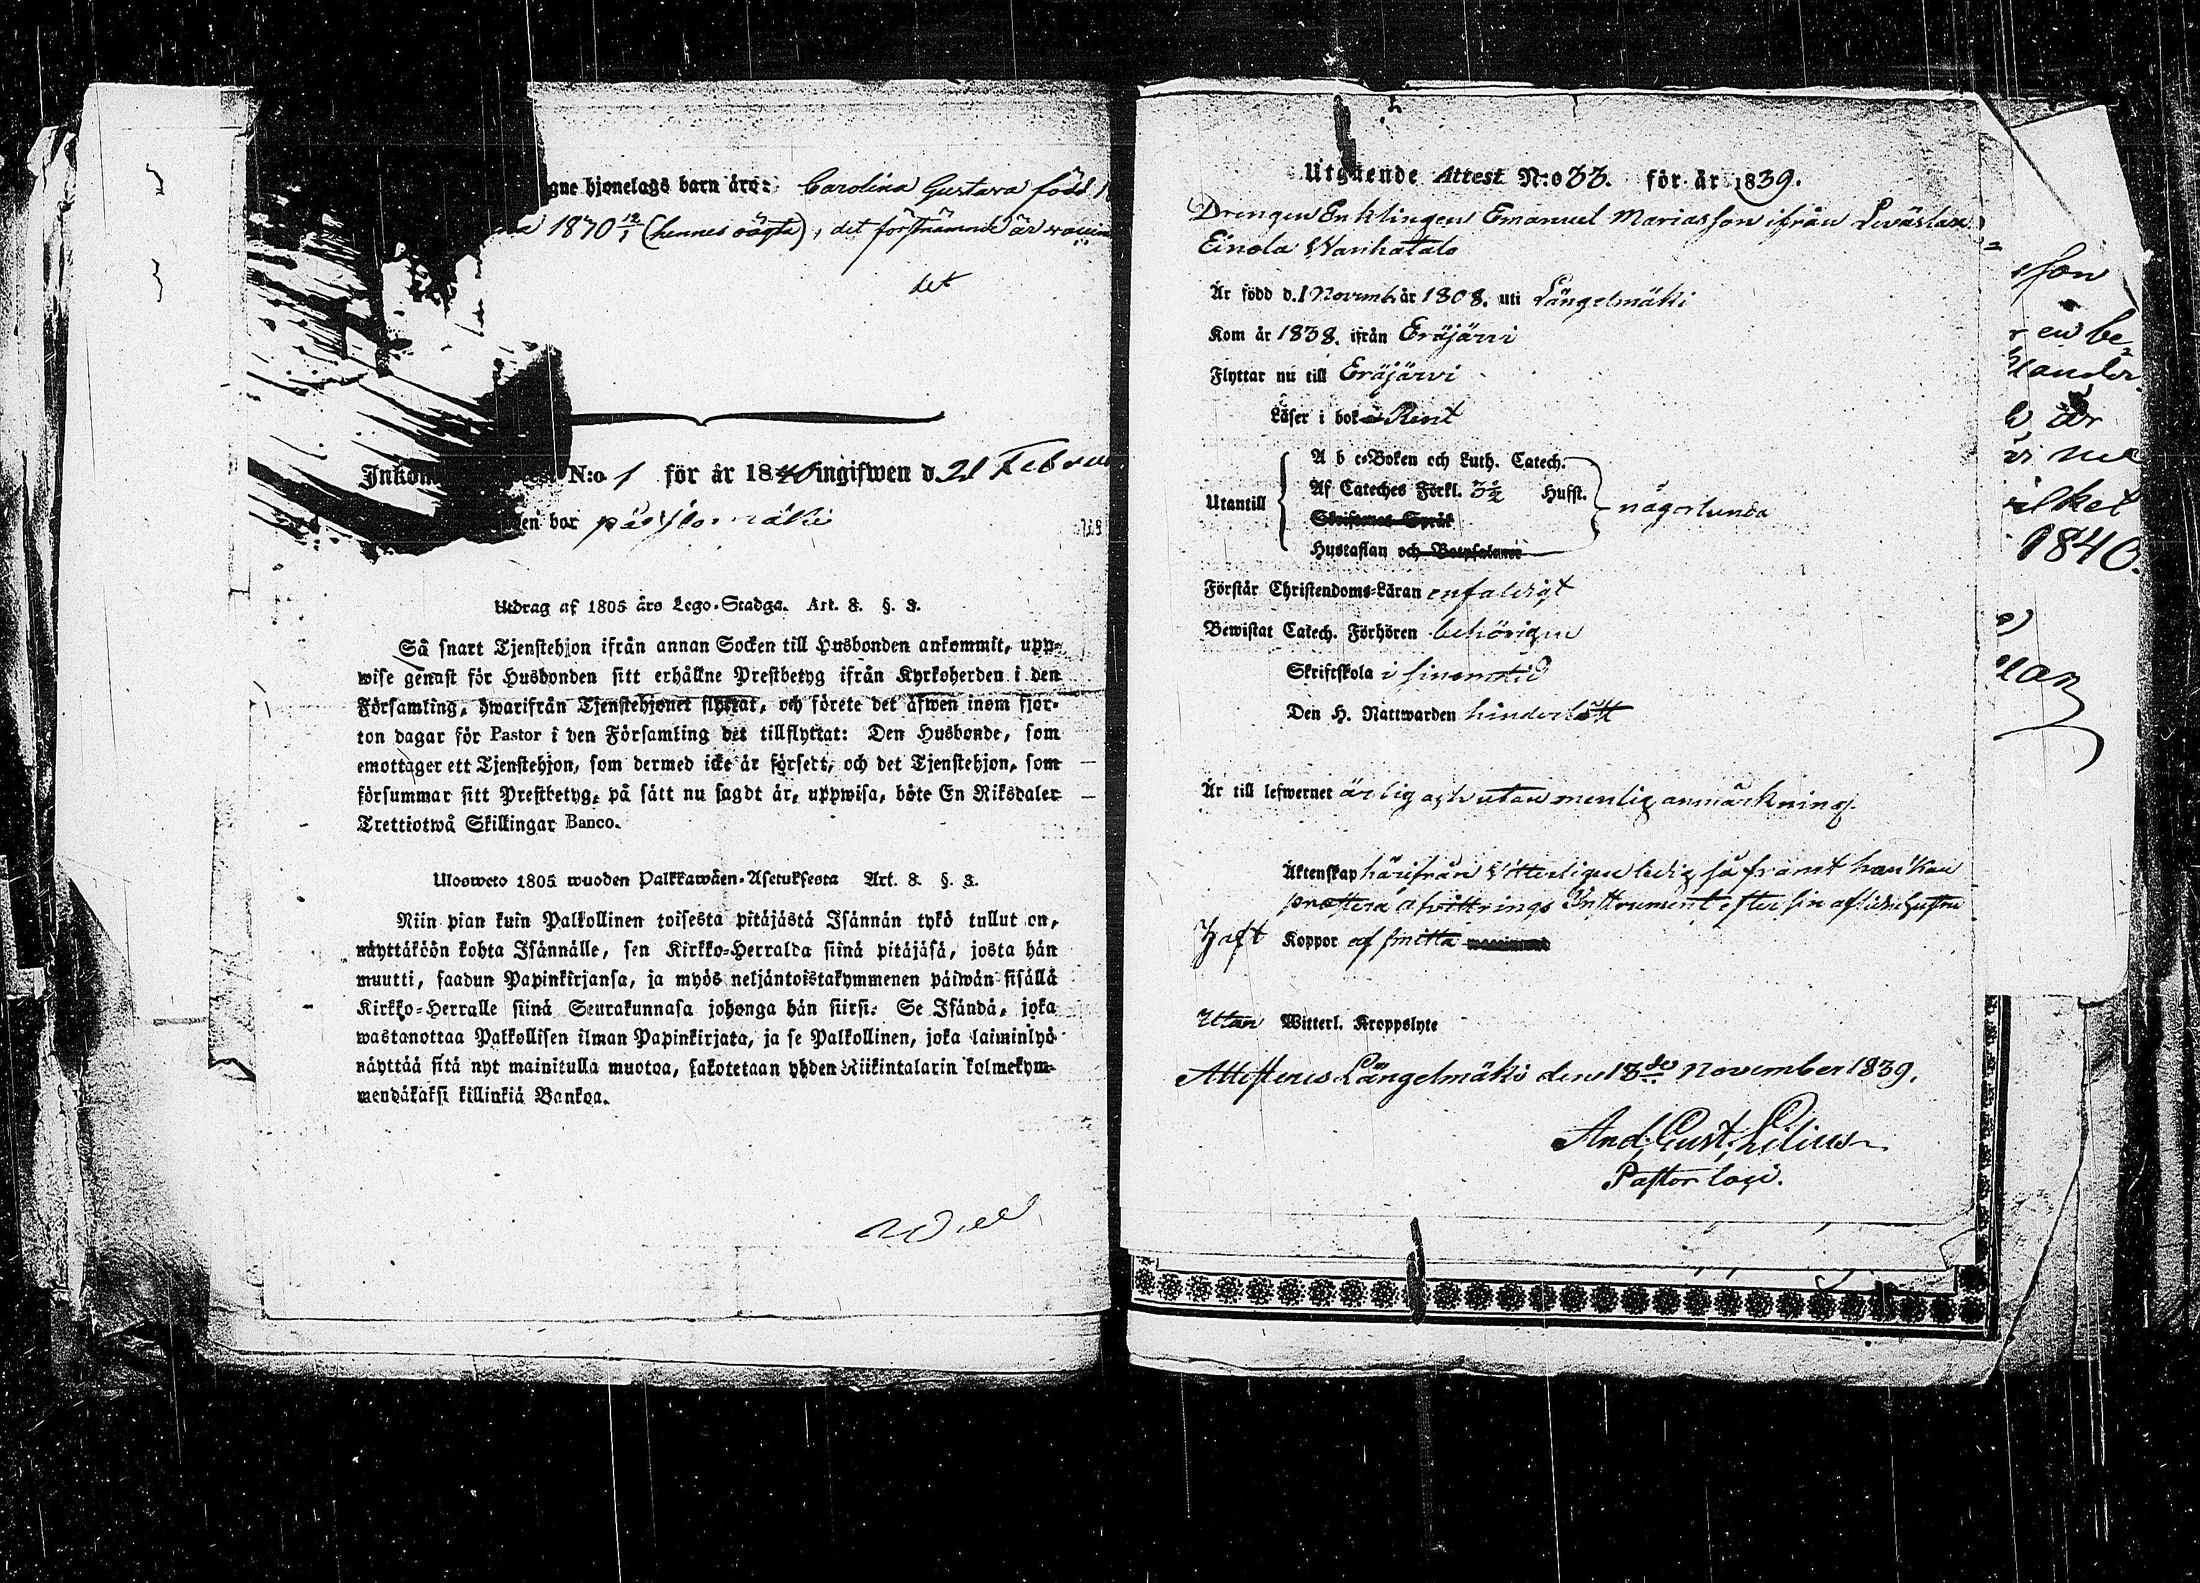 gne hjonelags barn äro: Carolina Gustava född
1840 12/1 (hennes oägta), det förstnämnde är
det
N:o 1 för år 1840 ingifwen d. 21 Februa
en bor på
Utdrag af 1805 års Lego-Stadga. Art. 8. §. 3.
Så snart Tjenstehjon ifrån annan Socken till Husbonden ankommit, upp-
wise genast för Husbonden sitt erhållne Prestbetyg ifrån Kyrkoherden i den
Församling, hwarifrån Tjenstehjonet flyttat, och förete det äfwen inom fjor-
ton dagar för Pastor i den Församling det tillflyttat: Den Husbonde, som
emottager ett Tjenstehjon, som dermed icke är försedt, och det Tjenstehjon, som
försummar sitt Prestbetyg, på sätt nu sagdt är, uppwisa, böte En Riksdaler
Trettiotwå Skillingar Banco.
Ulosweto 1805 wuoden Palkkawäen-Asetuksesta Art. 8. §. 3.
Niin pian kuin Palkollinen toisesta pitäjästä Isännän tykö tullut on,
näyttäköön kohta Isännälle, sen Kirkko-Herralda siinä pitäjäsä, josta hän
muutti, saadun Papinkirjansa, ja myös neljäntoistakymmenen päiwän sisällä
Kirkko-Herralle siinä Seurakunnasa johonga hän siirsi: Se Isändä, joka
wastanottaa Palkollisen ilman Papinkirjata, ja se Palkollinen, joka laiminlyö
näyttää sitä nyt mainitulla muotoa, sakotetaan yhden Riikintalarin kolmekym-
mendäkaksi killinkiä Bankoa.
Utgående Attest N:o 33. för år 1839.
Drengen Enklingen Emanuel Mariasson ifrån Leväslax
Einola Wanhatalo
Är född d. 1 Novemb. år 1808. uti Längelmäki
Kom år 1838. ifrån Eräjärvi
Flyttar nu till Eräjärvi
Läser i bok Rent
A b c-Boken och Luth. Catech.
Af Cateches Förkl. 3½ Hufst.
Utantill någorlunda
Skriftenes Språk
Hustaflan och Botpsalmer
Förstår Christendoms-Läran enfaldigt
Bewistat Catech. Förhören behörigen
Skriftskola i sinom tid
Den H. Nattwarden hinderlöst
Är till lefwernet ärlig och utan menlig anmärkning
Äktenskap härifrån Vitterligen ledig så framt han kan
prestera afvittrings Instrument efter sin aflidne hustru
Haft Koppor af smitta
Utan Witterl. Kroppslyte
Attesteras Längelmäki den 13de November 1839.
And. Gust. Lilius
Pastor loci.
son
en be-
är
ilket
1840.